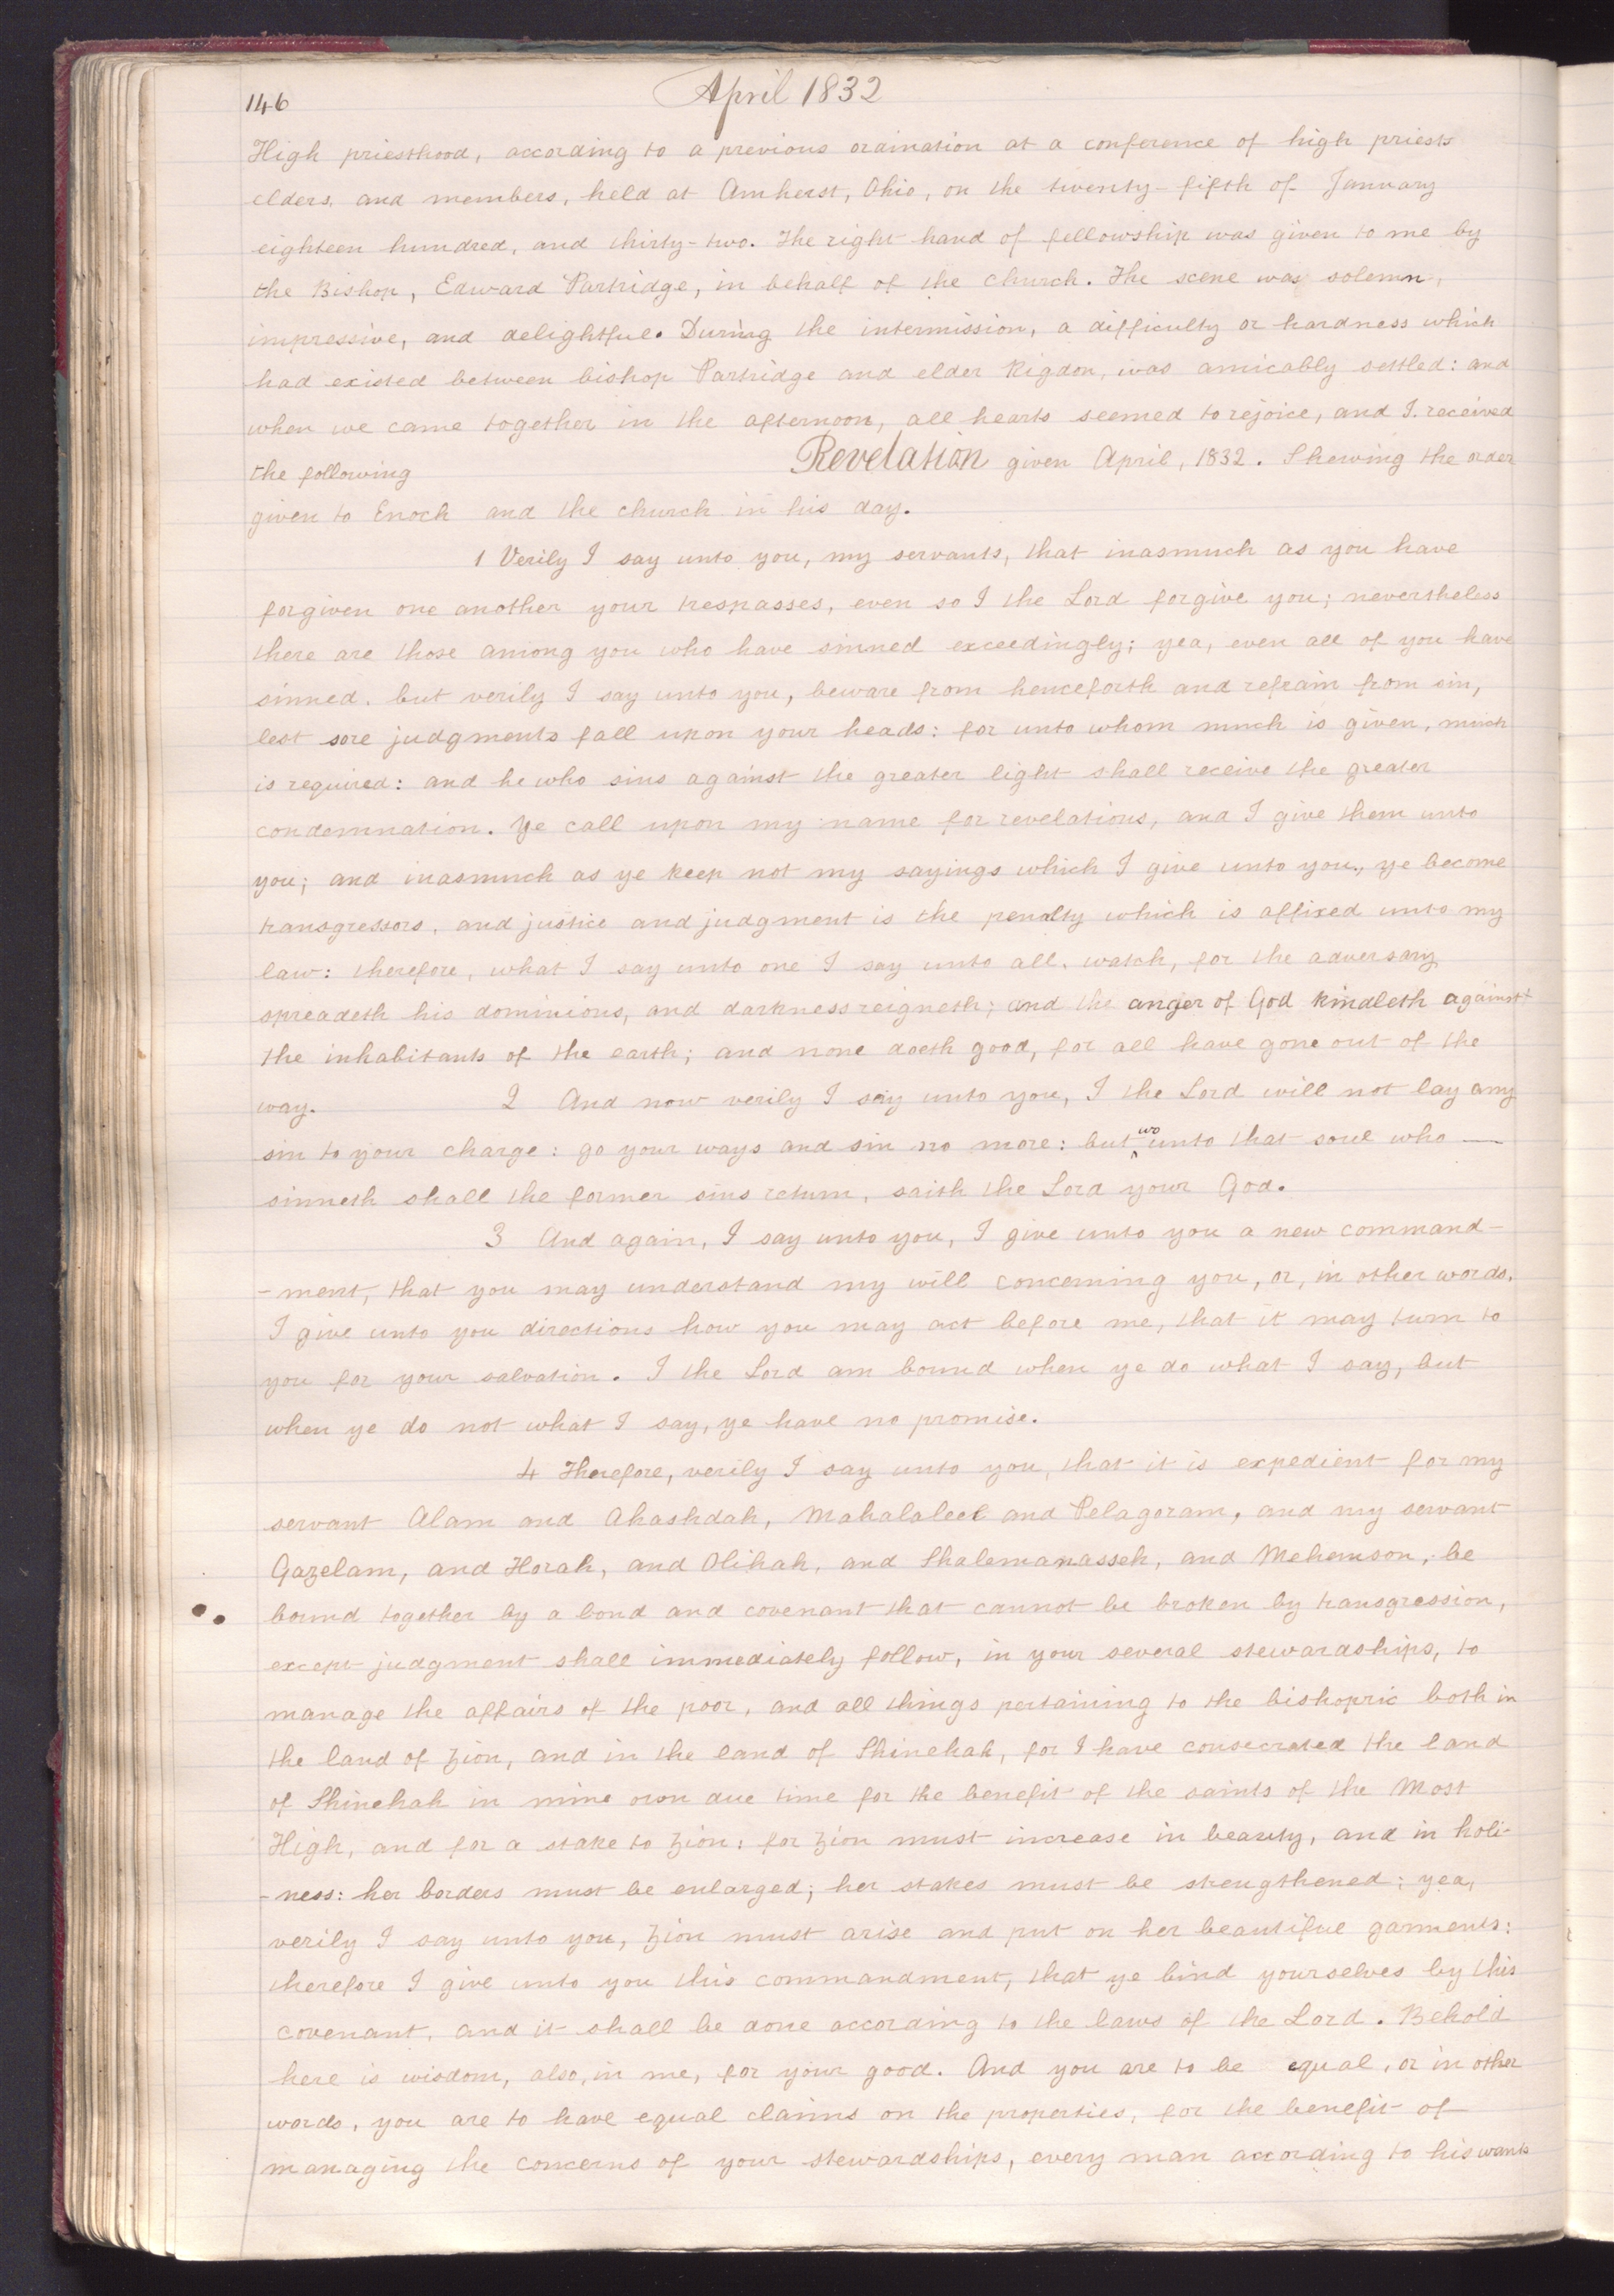 146
April 1832
High priesthood, according to a previous ordination at a conference of high priests
elders, and members, held at Amherst, Ohio, on the twenty-fifth of January
eighteen hundred, and thirty-two. The right hand of fellowship was given to me by
the Bishop, Edward Partridge, in behalf of the church. The scene was solemn,
impressive, and delightful. During the intermission, a difficulty or hardness which
had existed between bishop Partridge and elder Rigdon, was amicably settled: and
when we came together in the afternoon, all hearts seemed to rejoice, and I received
the following Revelation given April, 1832. Shewing the order
given to Enoch and the church in his day.
1 Verily I say unto you, my servants, that inasmuch as you have
forgiven one another your trespasses, even so I the Lord forgive you; nevertheless
there are those among you who have sinned exceedingly; yea, even all of you have
sinned. but verily I say unto you, beware from henceforth and refrain from sin,
lest sore judgments fall upon your heads: for unto whom much is given, much
is required: and he who sins against the greater light shall receive the greater
condemnation. Ye call upon my name for revelations, and I give them unto
you; and inasmuch as ye keep not my sayings which I give unto you, ye become
transgressors, and justice and judgment is the penalty which is affixed unto my
law: therefore, what I say unto one I say unto all. watch, for the adversary
spreadeth his dominions, and darkness reigneth; and the anger of God kindleth against
the inhabitants of the earth; and none doeth good, for all have gone out of the
way. 2 And now verily I say unto you, I the Lord will not lay any
sin to your charge: go your ways and sin no more: but wo unto that soul who —
sinneth shall the former sins return, saith the Lord your God.
3 And again, I say unto you, I give unto you a new command-
-ment, that you may understand my will concerning you, or, in other words,
I give unto you directions how you may act before me, that it may turn to
you for your salvation. I the Lord am bound when ye do what I say, but
when ye do not what I say, ye have no promise.
4 Therefore, verily I say unto you, that it is expedient for my
servant Alam and Ahashdah, Mahalaleel and Pelagoram, and my servant
Gazelam, and Horah, and Olihah, and Shalemanasseh, and Mehemson, be
bound together by a bond and covenant that cannot be broken by transgression,
except judgment shall immediately follow, in your several stewardships, to
manage the affairs of the poor, and all things pertaining to the bishopric both in
the land of Zion, and in the land of Shinehah, for I have consecrated the land
of Shinehah in mine own due time for the benefit of the saints of the Most
High, and for a stake to Zion: for Zion must increase in beauty, and in holi-
-ness: her borders must be enlarged; her stakes must be strengthened; yea,
verily I say unto you, Zion must arise and put on her beautiful garments:
therefore I give unto you this commandment, that ye bind yourselves by this
covenant, and it shall be done according to the laws of the Lord. Behold
here is wisdom, also, in me, for your good. And you are to be equal, or in other
words, you are to have equal claims on the properties, for the benefit of
managing the concerns of your stewardships, every man according to his wants